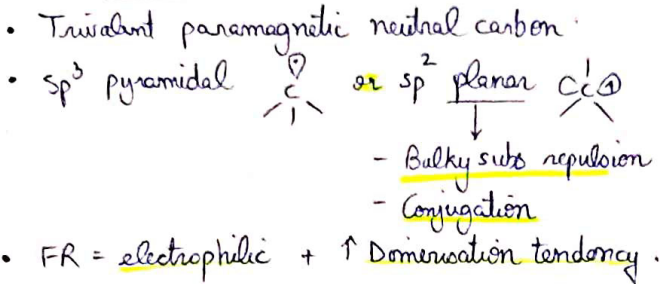 • Trivalent paramagnetic neutral carbon.
• sp³ pyramidal C or sp² planar C
- Bulky subs repulsion
- Conjugation
• FR = electrophilic + ↑ Domerisation tendency.